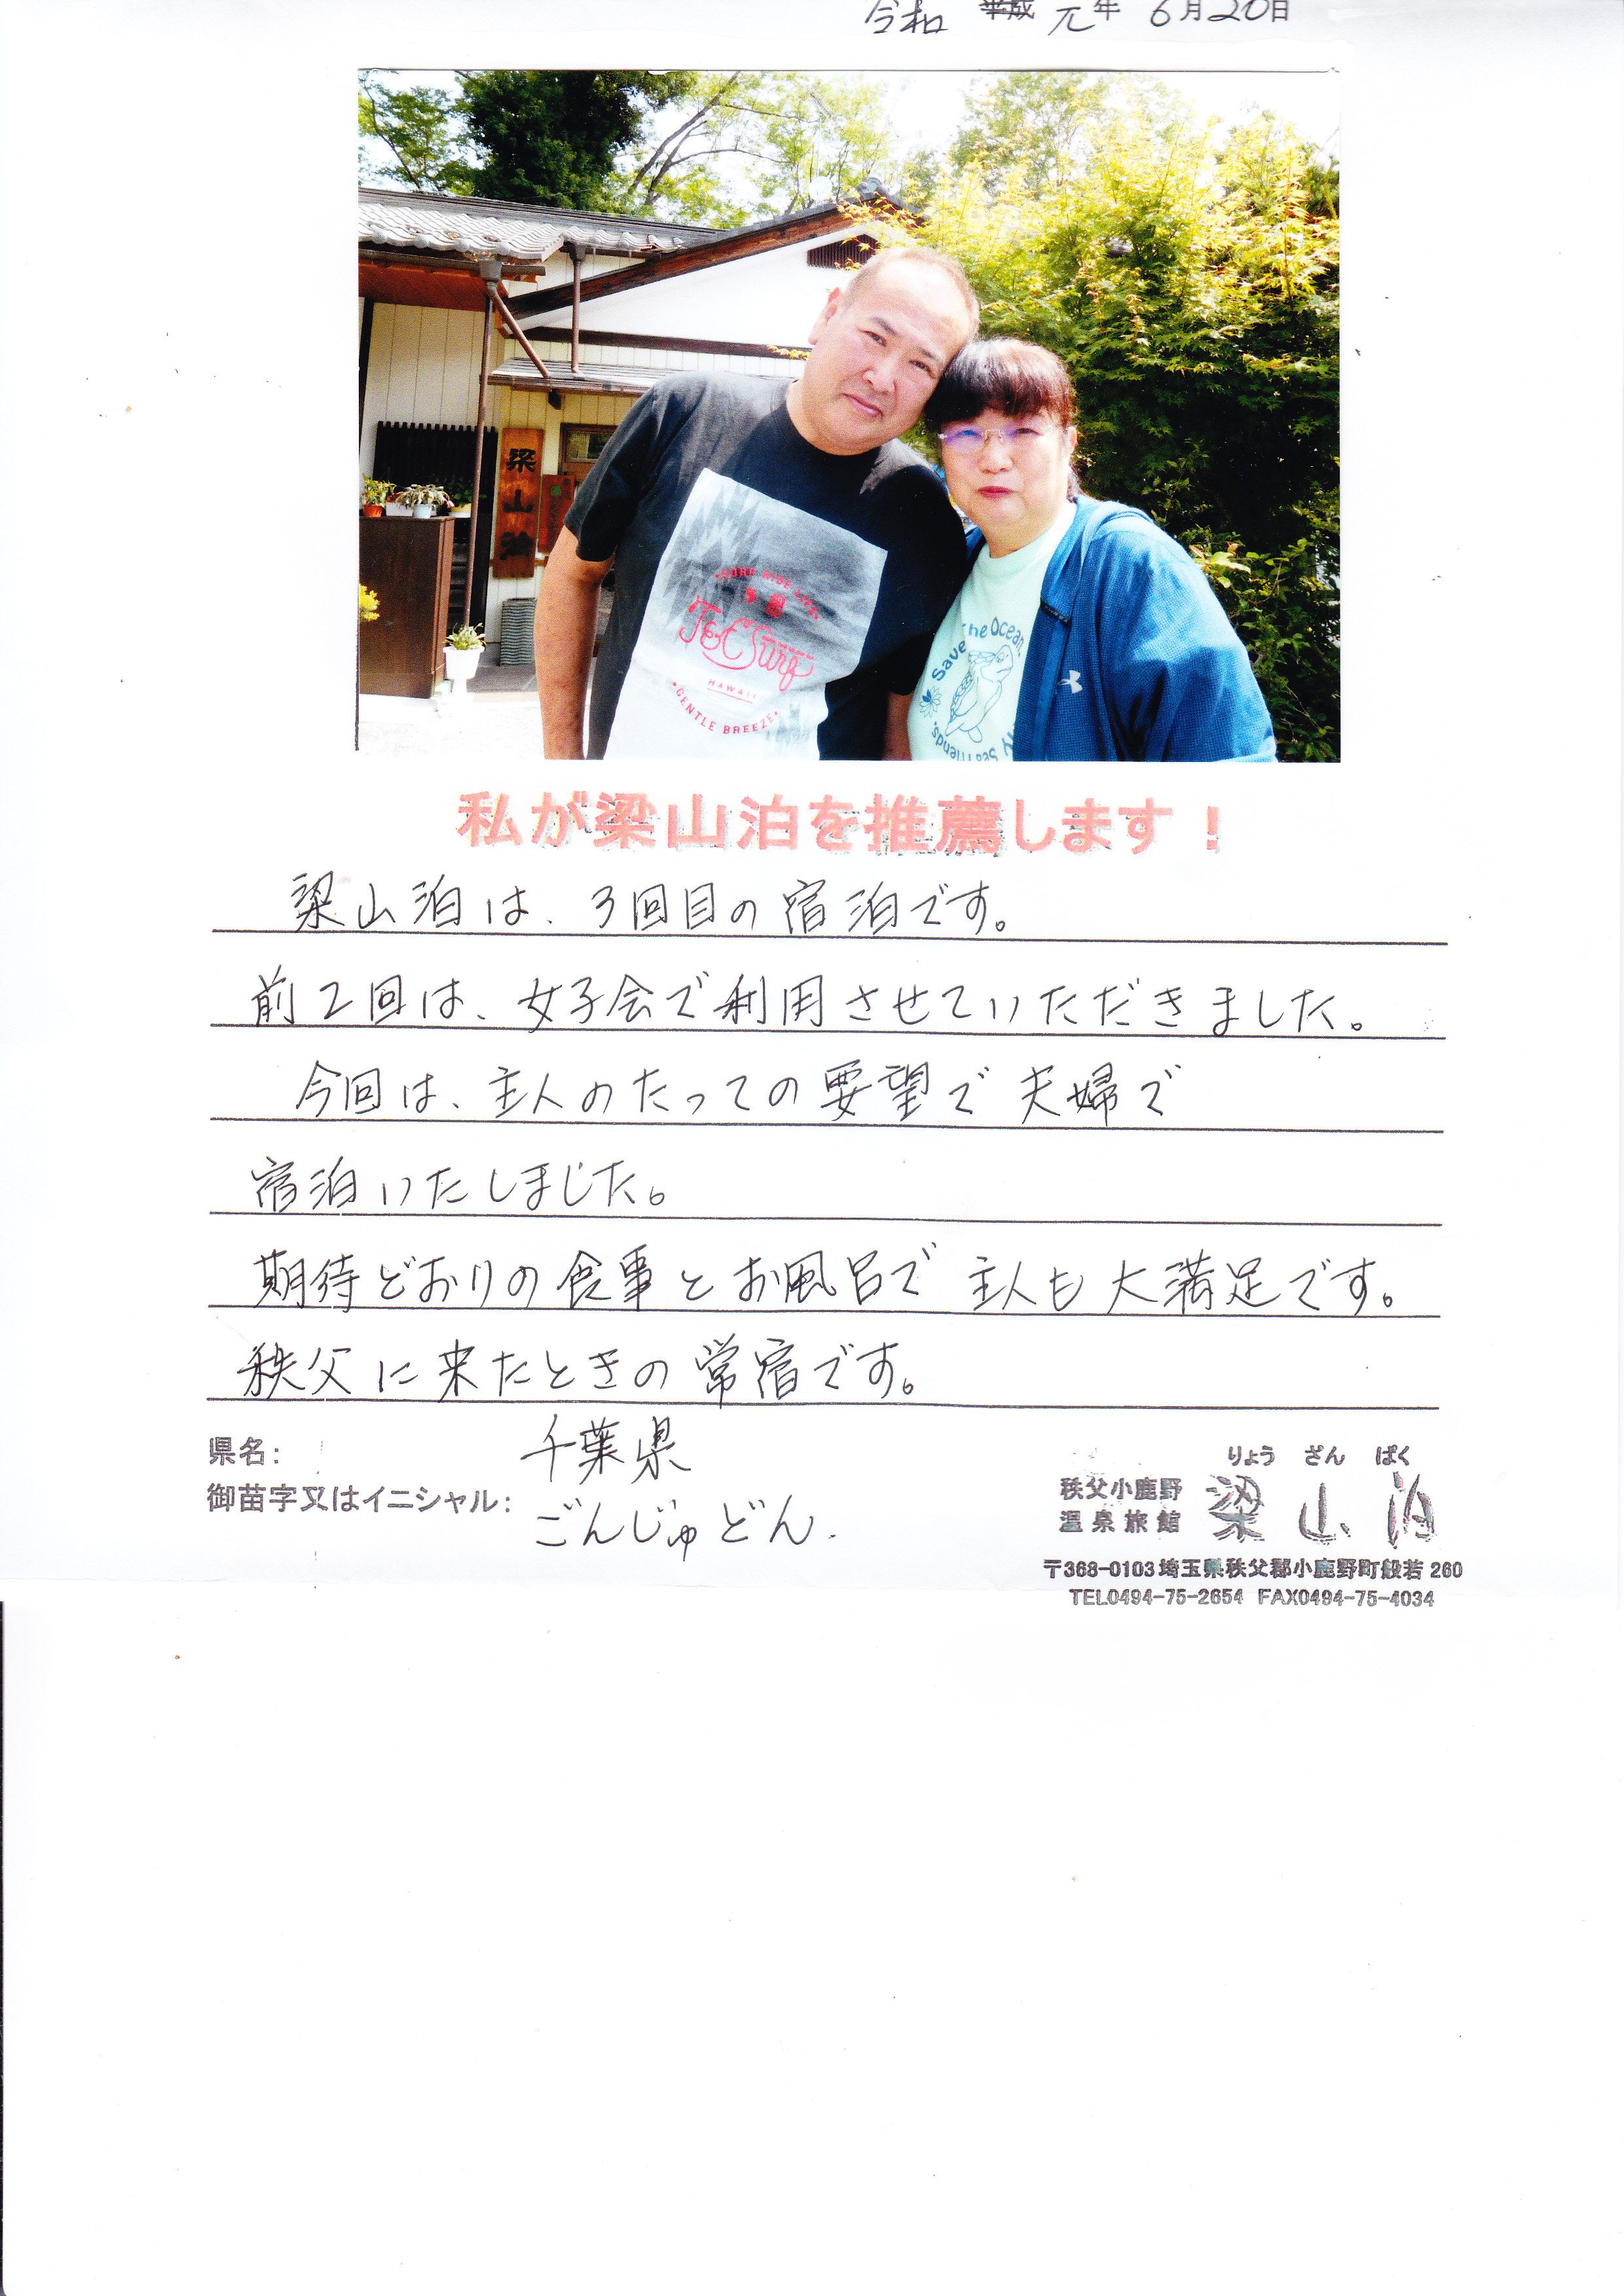 令和 平成 元年 6月20日
梁山泊
JetSurf
HAWAII
GENTLE BREEZE
Save The Ocean.
My Sea Friends.
私が梁山泊を推薦します！
梁山泊は、3回目の宿泊です。
前2回は、女子会で利用させていただきました。
今回は、主人のたっての要望で夫婦で
宿泊いたしました。
期待どおりの食事とお風呂で主人も大満足です。
秩父に来たときの常宿です。
県名： 千葉県
御苗字又はイニシャル： ごんじゅどん.
りょう ざん ぱく
秩父小鹿野
温泉旅館 梁山泊
〒368-0103埼玉県秩父郡小鹿野町般若260
TEL0494-75-2654 FAX0494-75-4034